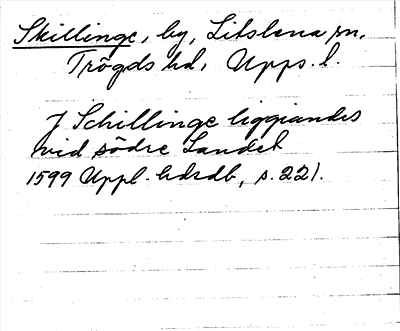 Skillinge, by, Litslena sn,
Trögds hd, Upps. l.
J Schillinge liggiandes
vid södre Landet
1599 Uppl. hdsdb, s. 221.